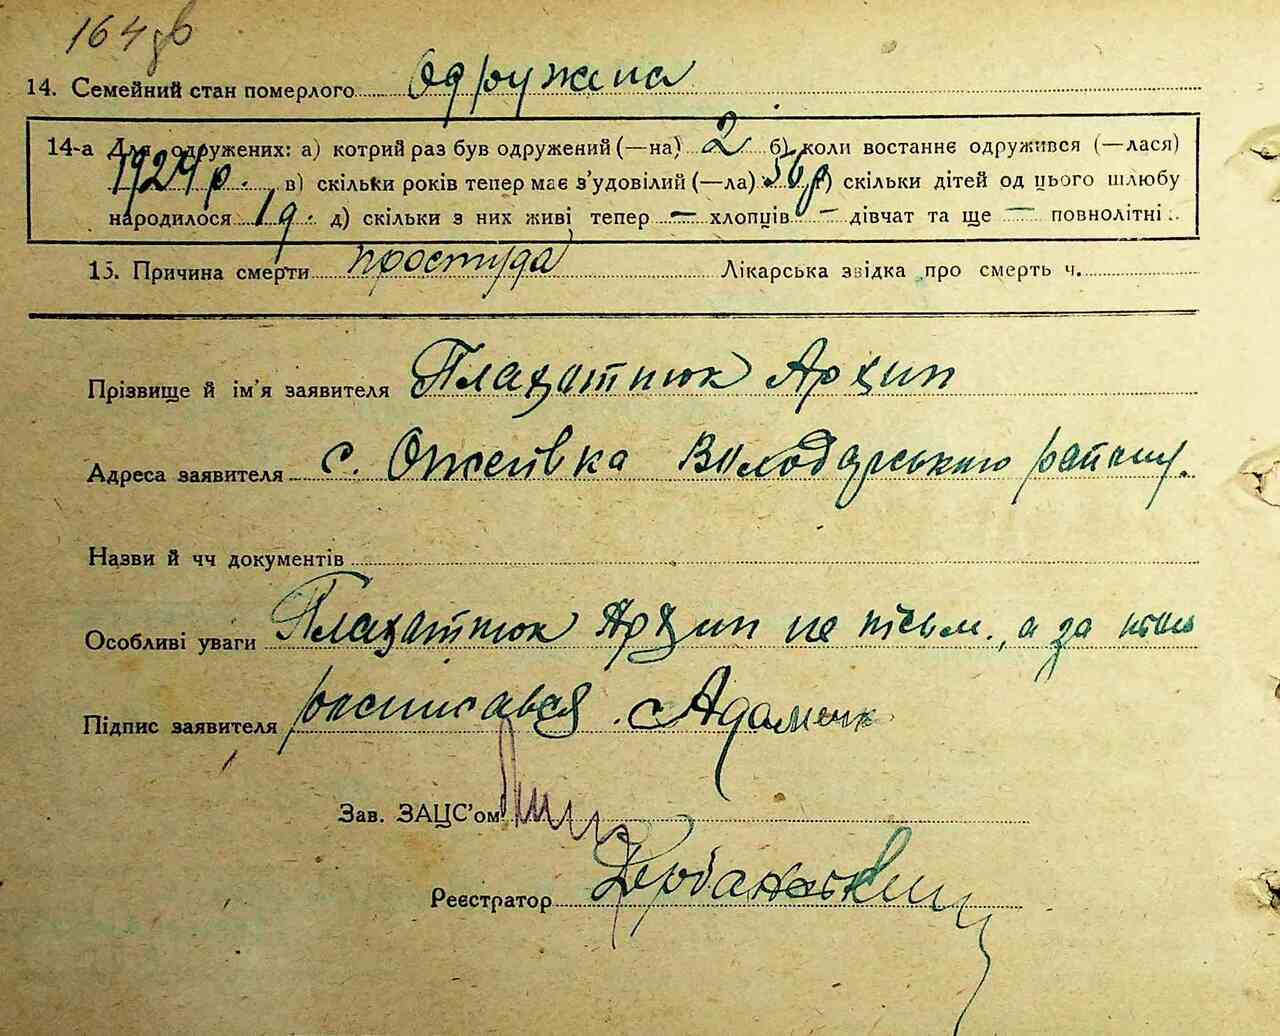 164 зв
14. Семейний стан померлого Одружена
14-а Для одружених: а) котрий раз був одружений (—на) 2 б) коли востаннє одружився (—лася)
1924 р. в) скільки років тепер має з'удовілий (—ла) 56 р г) скільки дітей од цього шлюбу
народилося 1 д. д) скільки з них живі тепер — хлопців — дівчат та ще — повнолітні
15. Причина смерти простуда Лікарська звідка про смерть ч.
Прізвище й ім'я заявителя Плахотнюк Архип
Адреса заявителя с. Ожегівка Володарського району.
Назви й чч документів
Особливі уваги Плахотнюк Архип не письм., а за нього
Підпис заявителя росписався Адаменк
Зав. ЗАЦС'ом
Реєстратор Урбановський